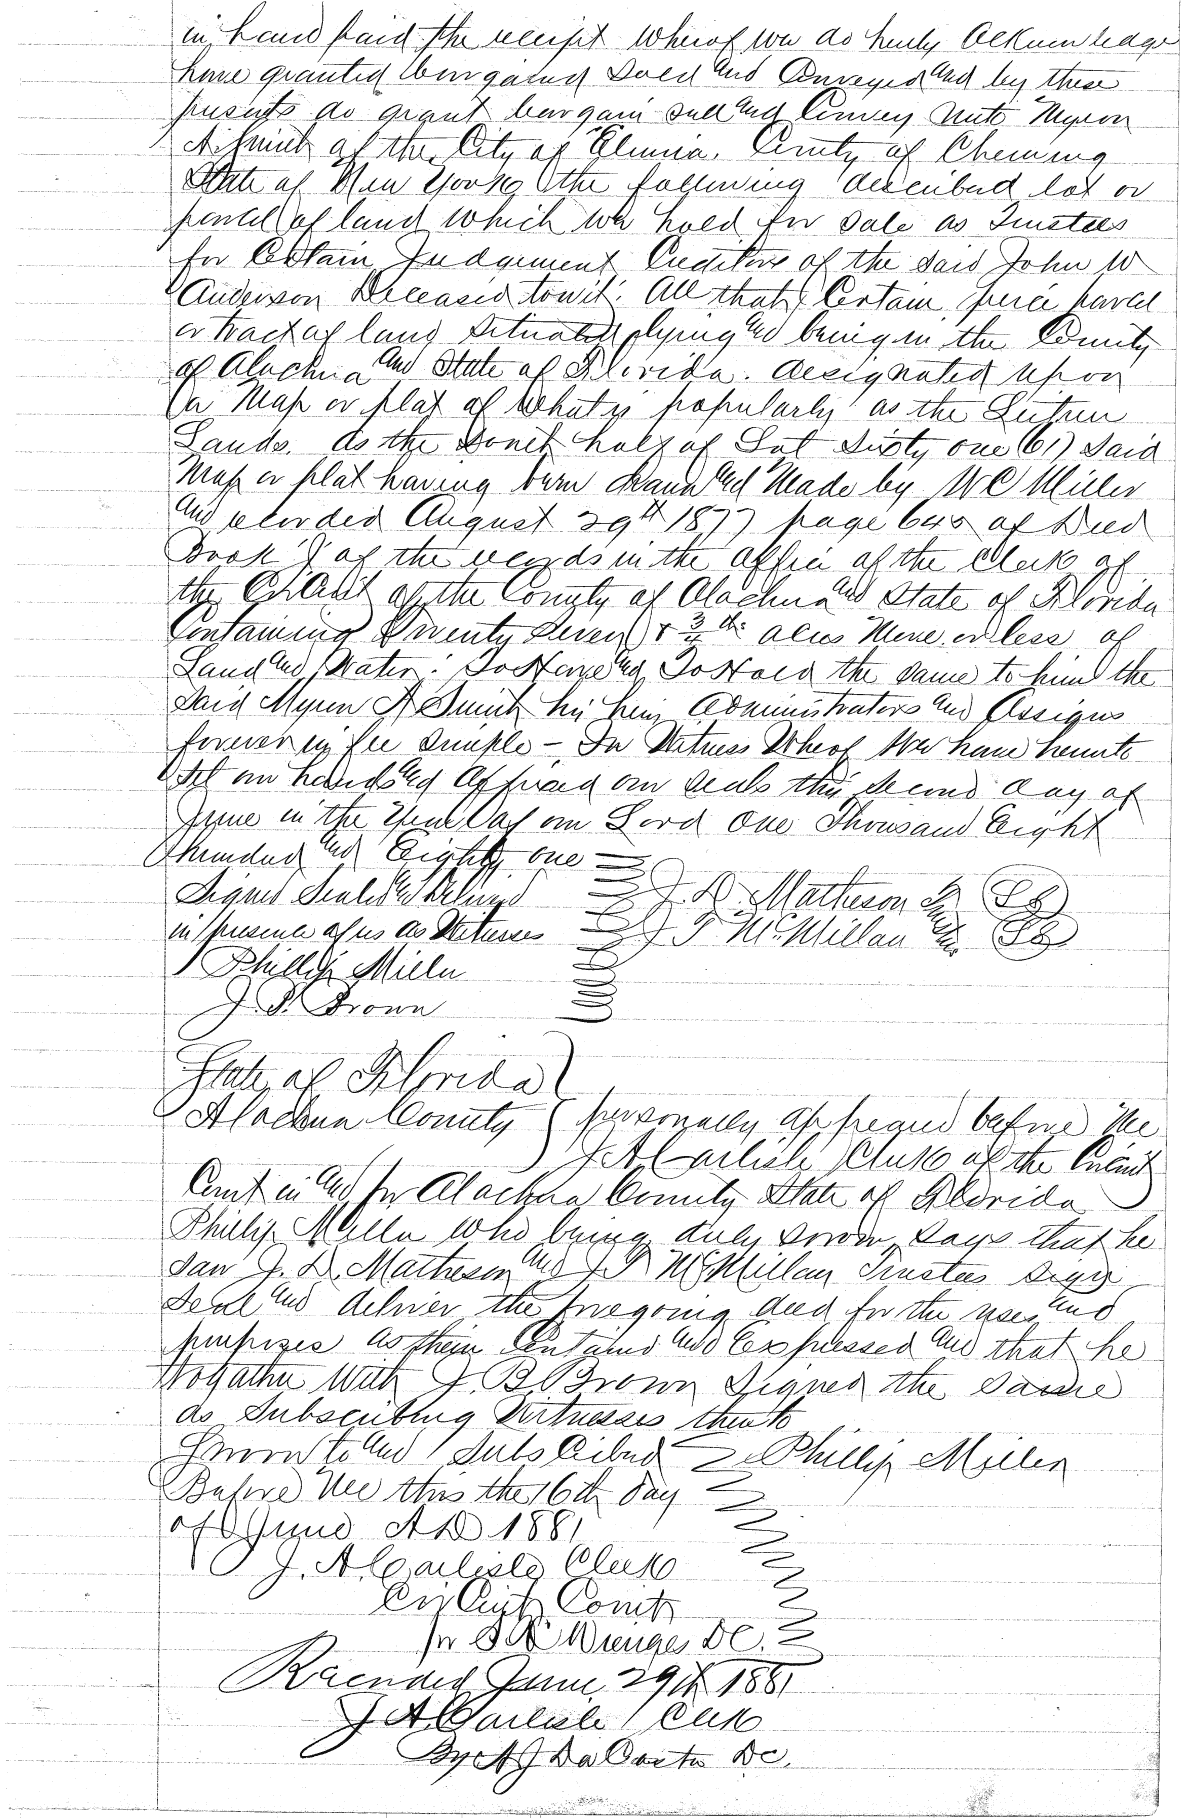 in hand paid the receipt Wherof we do herby Acknowledge
have granted bargained Sold and Conveyed and by these
presents do grant bargain sell and Convey unto Myron
A. Smith of the City of Elmira, County of Chemung
State of New York the following described lot or
parcel of land which we hold for sale as Trustees
for Certain Judgement Creditors of the said John W
Anderson Deceased towit: All that Certain piece parcel
or tract of land Situated lying and being in the County
of Alachua and State of Florida. designated upon
a Map or plat of What is popularly as the
Lands. As the half of Lot Sixty one (61) Said
Map or plat having been drawn and Made by W C Miller
and recorded August 29th 1877 page 640 of Deed
Book of the records in the office of the Clerk of
the Court of the County of Alachua and State of Florida
Containing Twenty Seven & acres More or less of
Land and Water: To Have and To Hold the same to him the
Said Myron A Smith his heirs Administrators and Assigns
forever in fee simple – In Witness Wherof We have hereunto
Set our hands and Affixed our seals this second day of
June in the Year of our Lord One Thousand Eight
hundred and Eighty one
Signed Sealed & Delivered J. D. Matheson
in presence of us as Witnesses J T McMillan
Phillip Miller
J. B. Brown
State of Florida
Alachua County personally appeared before Me
J A Carlisle Clerk of the Circuit
Court in and for Alachua County State of Florida
Phillip Miller Who being duly sworn says that he
saw J. D. Matheson and J T McMillan Trustees sign
Seal and deliver the foregoing deed for the uses and
purposes as therin Containd and Expressed and that he
Togather With J. B. Brown Signed the same
as Subscribing Witnesses thereto
Sworn to and Subscribed Phillip Miller
Before Me this the 16th Day
of June AD 1881
J. A. Carlisle Clerk
Circuit Court
Per Wienges DC.
Recorded June 29th 1881
J A Carlisle Clerk
By A J Da Costa DC.